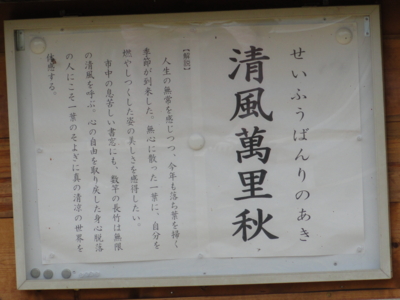 せいふうばんりのあき
清風萬里秋
【解説】
人生の無常を感じつつ、今年も落ち葉を掃く
季節が到来した。無心に散った一葉に、自分を
燃やしつくした姿の美しさを感得したい。
市中の息苦しい書窓にも、数竿の長竹は無限
の清風を呼ぶ。心の自由を取り戻した身心脱落
の人にこそ一葉のそよぎに真の清涼の世界を
体感する。